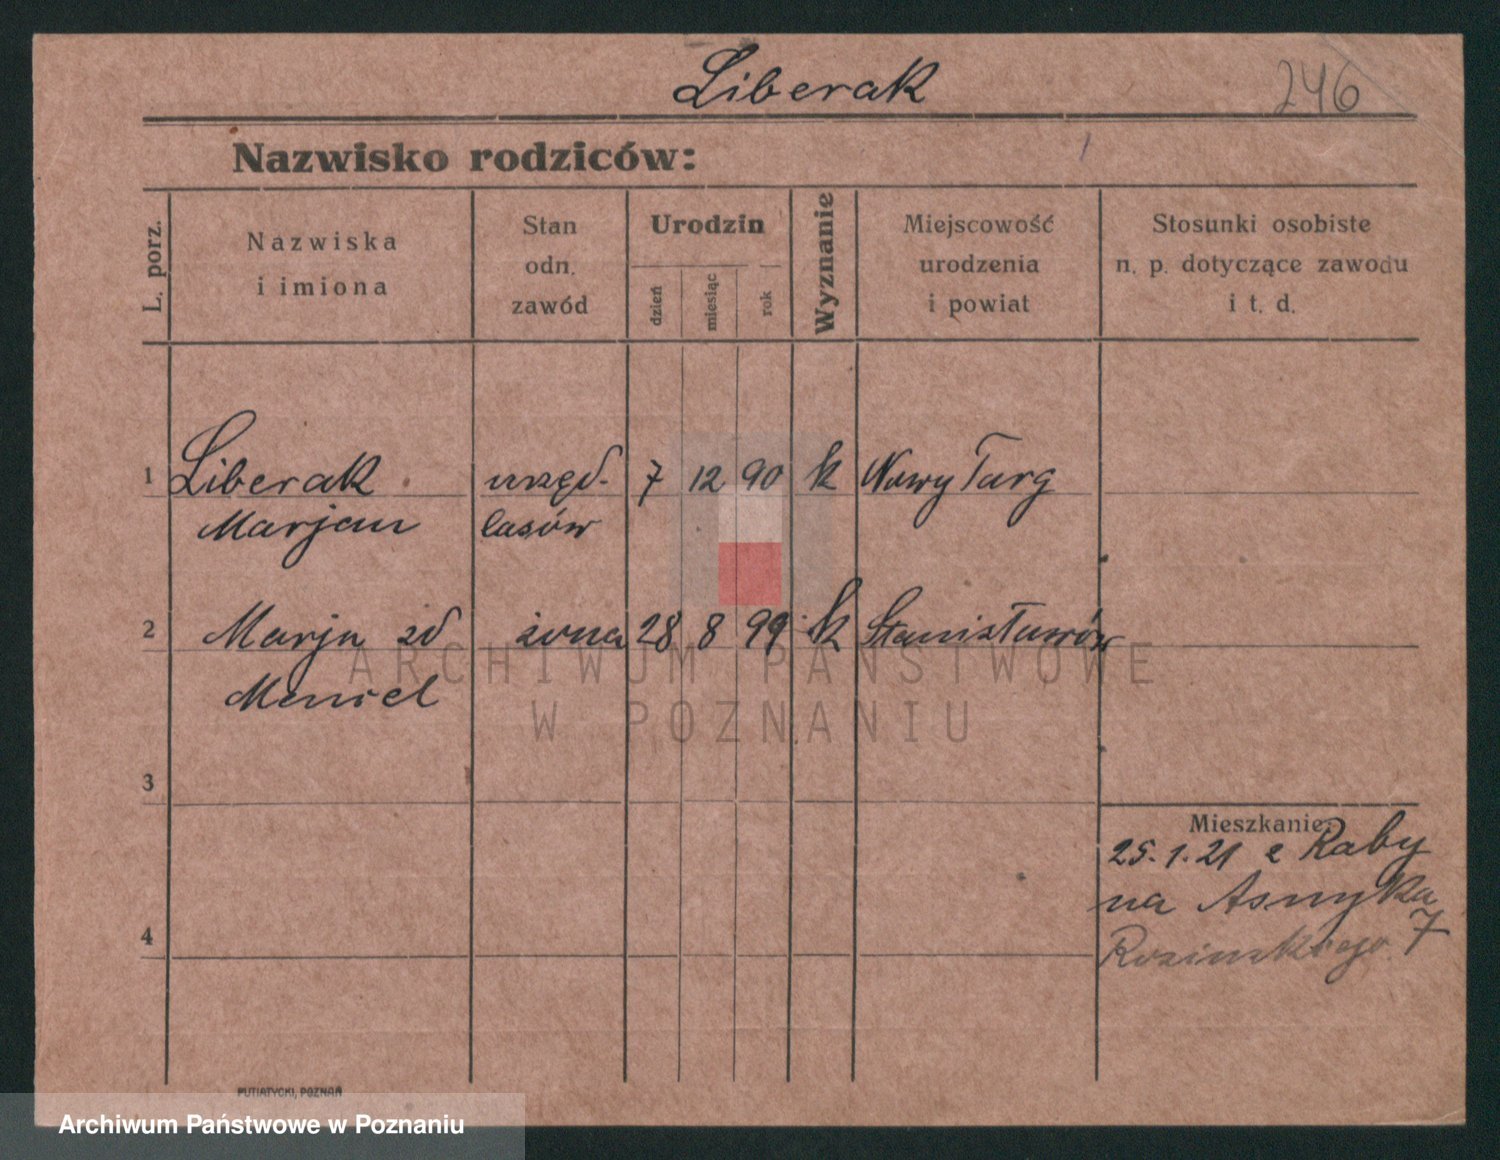 Liberak
246
Nazwisko rodziców:
L. porz.
Nazwiska
i imiona
Stan
odn.
zawód
Urodzin
dzień
miesiąc
rok
Wyznanie
Miejscowość
urodzenia
i powiat
Stosunki osobiste
n. p. dotyczące zawodu
i t. d.
1 Liberak urzęd. 7 12 90 k Nowy Targ
Marjan lasów
2 Marja zd żona 28 8 99 k Stanisławów
3
4
Mieszkanie:
25.1.21 z Raby
na Asnyka
7
PUTIATYCKI, POZNAŃ
ARCHIWUM PAŃSTWOWE
W POZNANIU
Archiwum Państwowe w Poznaniu